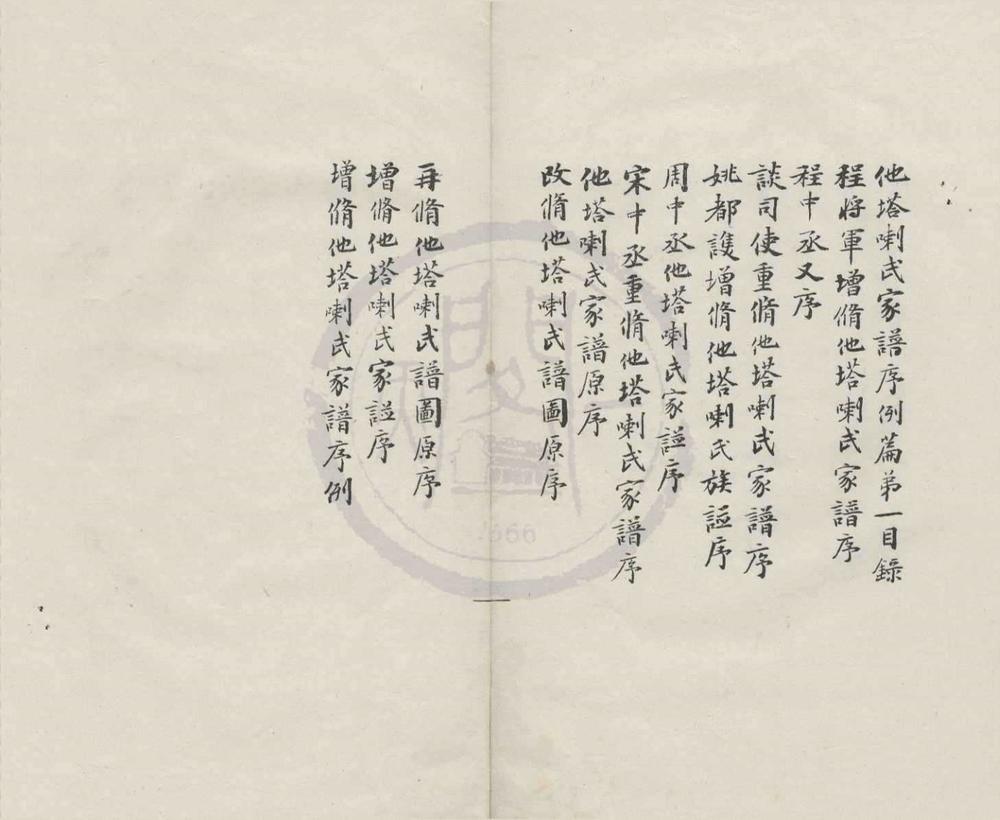 他塔喇氏家譜序例篇第一目錄
程將軍增脩他塔喇氏家譜序
程中丞又序
談司使重脩他塔喇氏家譜序
姚都護增脩他塔喇氏族譜序
周中丞他塔喇氏家譜序
宋中丞重脩他塔喇氏家譜序
他塔喇氏家譜原序
改脩他塔喇氏譜圖原序
再脩他塔喇氏譜圖原序
增脩他塔喇氏家譜序
增脩他塔喇氏家譜序例
1666